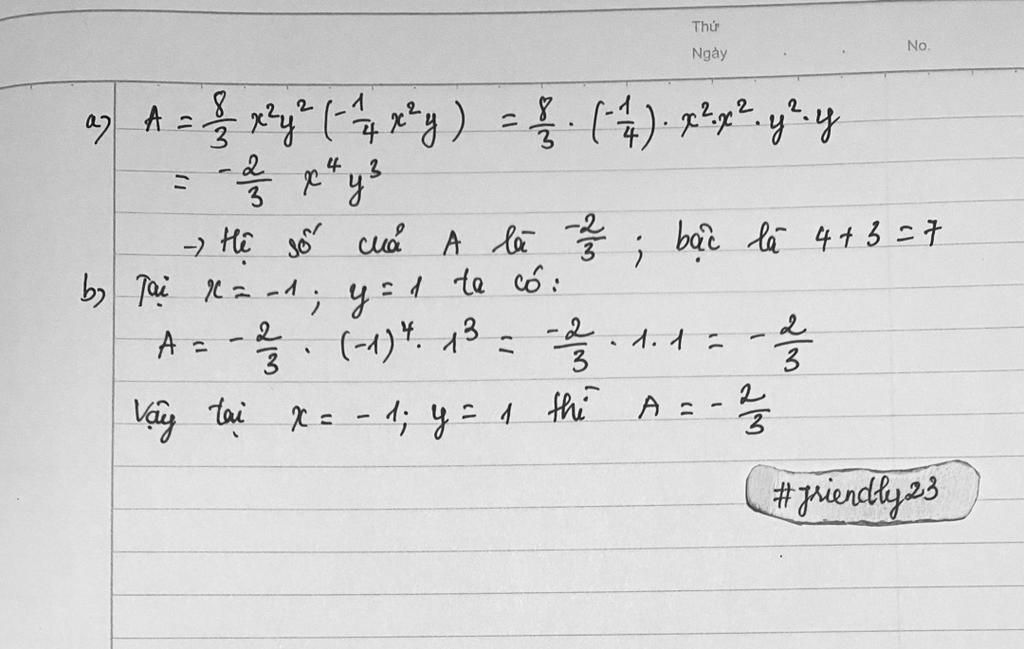 Thứ
Ngày . . No.
a) A = 8/3 x²y² (-1/4 x²y) = 8/3 · (-1/4) · x²·x²·y²·y
= -2/3 x⁴y³
→ Hệ số cuả A là -2/3 ; bậc là 4 + 3 = 7
b) Tại x = -1 ; y = 1 ta có :
A = -2/3 · (-1)⁴ · 1³ = -2/3 · 1 · 1 = -2/3
Vậy tại x = -1; y = 1 thì A = -2/3
#friendly23